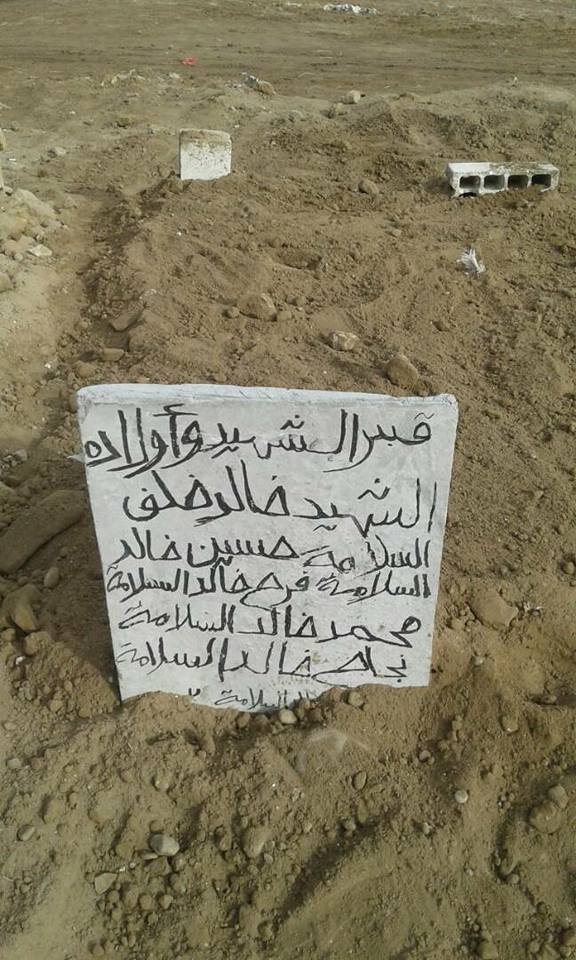 قبر الشهيد وأولاده
الشهيد خالد خلف
السلامة حسين خالد
السلامة فرح خالد السلامة
محمد خالد السلامة
نجاح خالد السلامة
السلامة